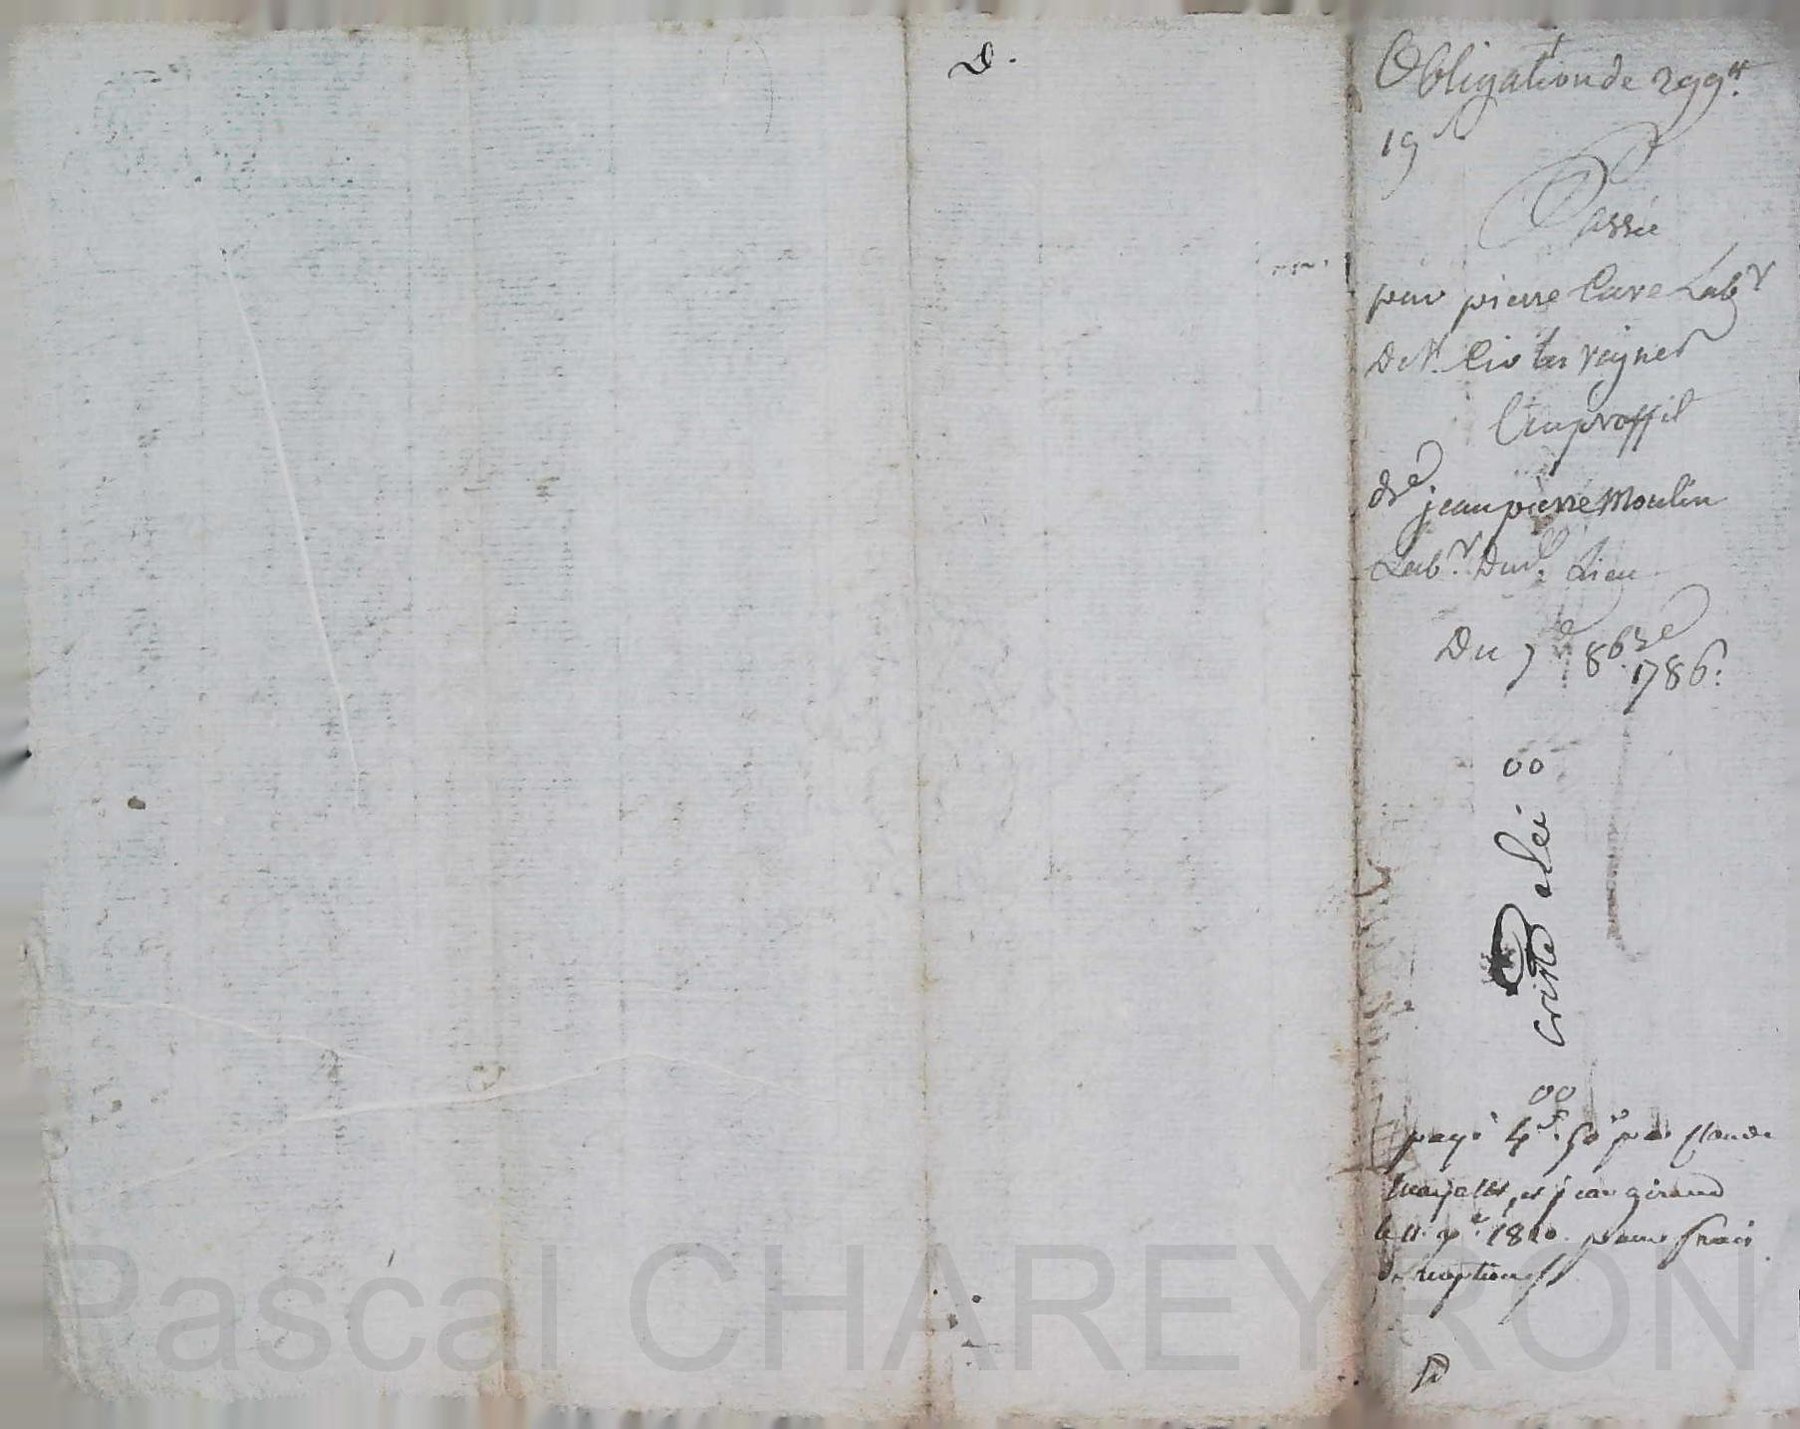 D.
Obligation de 299tt
19s
Passée
par pierre Cuve Labr
De St. Cirles Vignes
Au proffit
de jean pierre Moulin
Labr. Dud. Lieu
Du 7e 8bre
1786.
00
Cotté
00
payé 4f. 50 par Claude
et jean giraud
le 11. 1810. pour frais
Pascal CHAREYRON